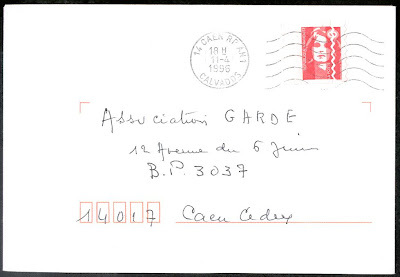 14 CAEN RP AM1
18 H
11-4
1996
CALVADOS
Association GARDE
12 Avenue du 6 Juin
B.P. 3037
14017 Caen Cedex